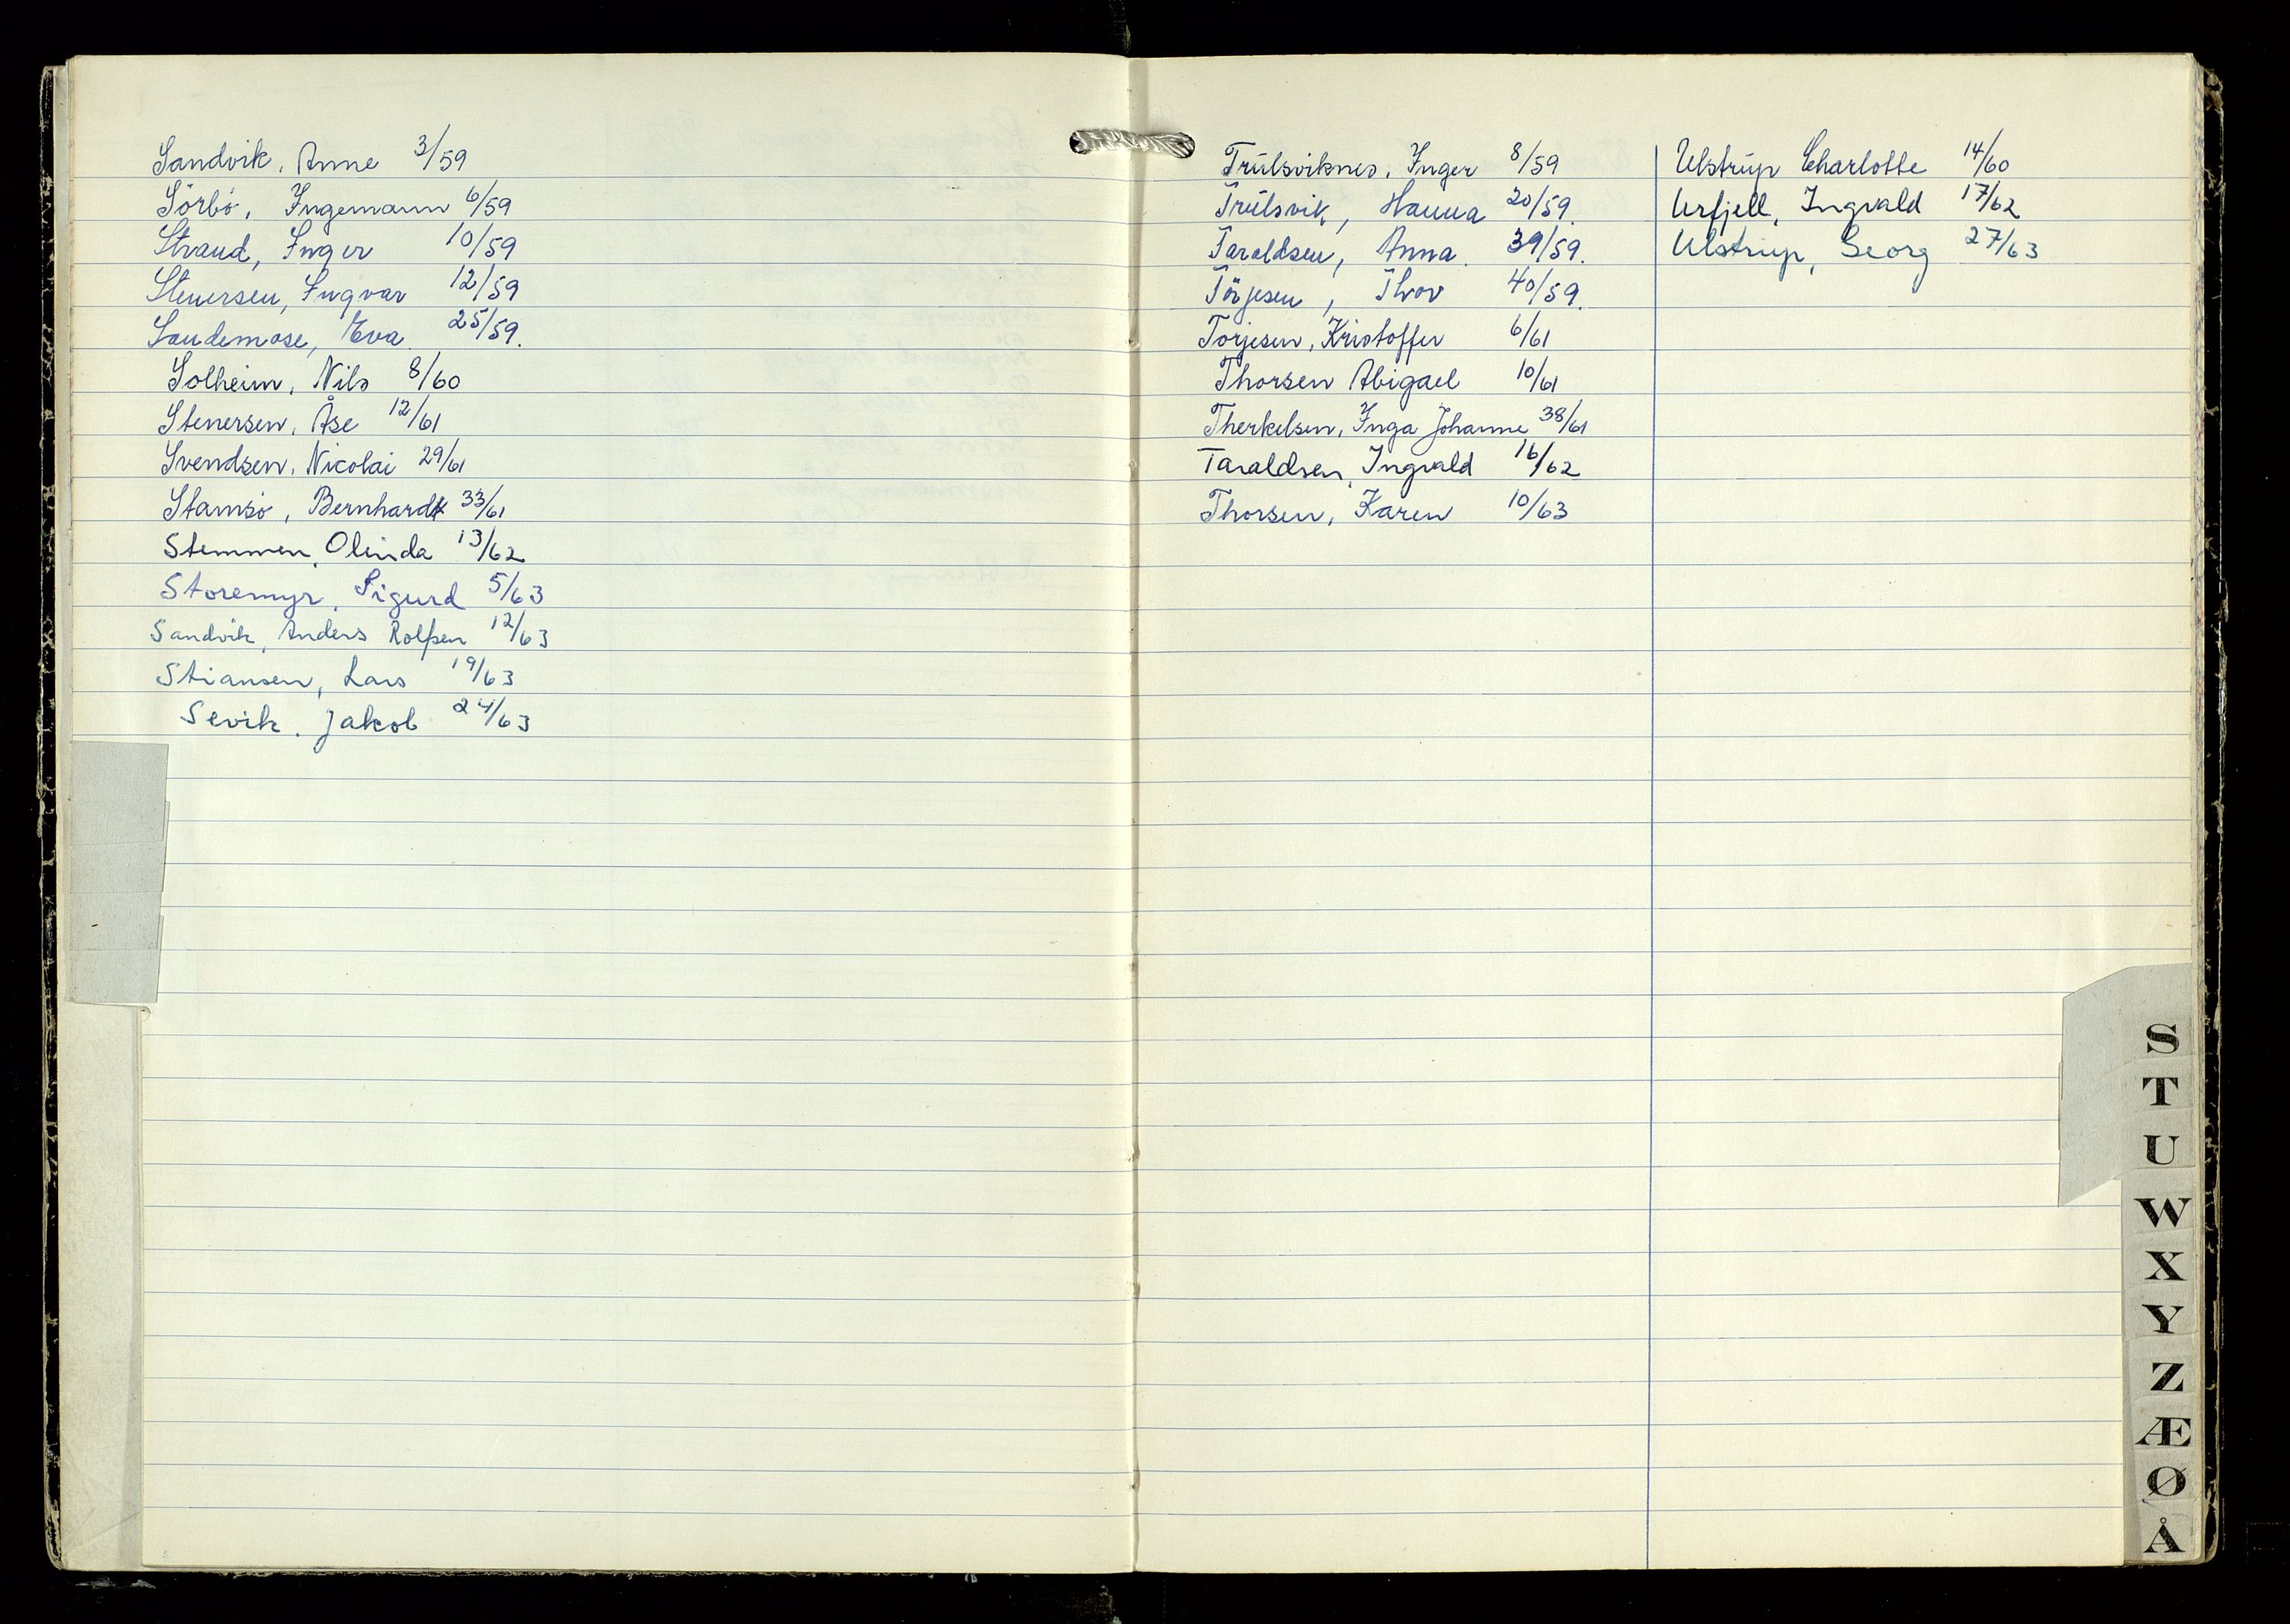 Sandvik, Anne 3/59
Sörbö, Ingemann 6/59
Strand, Inger 10/59
Stenersen, Ingvar 12/59
Sandemose, Eva. 25/59.
Solheim, Nils 8/60
Stenersen, Åse 12/61
Svendsen, Nicolai 29/61
Stamsö, Bernhardt 33/61
Stemmen, Olinda 13/62
Storemyr, Sigurd 5/63
Sandvik, Anders Rolfsen 12/63
Stiansen, Lars 19/63
Sevik, Jakob 24/63
Trulsviknes, Inger 8/59
Trulsvik, Hanna 20/59.
Taraldsen, Anna. 39/59.
Törjesen, Thor 40/59.
Torjesen, Kristoffer 6/61
Thorsen Abigael 10/61
Therkelsen, Inga Johanne 38/61
Taraldsen, Ingvald 16/62
Thorsen, Karen 10/63
Ulstrup Charlotte 14/60
Urfjell, Ingvald 17/62
Ulstrup, Georg 27/63
S
T
U
W
X
Y
Z
Æ
Ø
Å